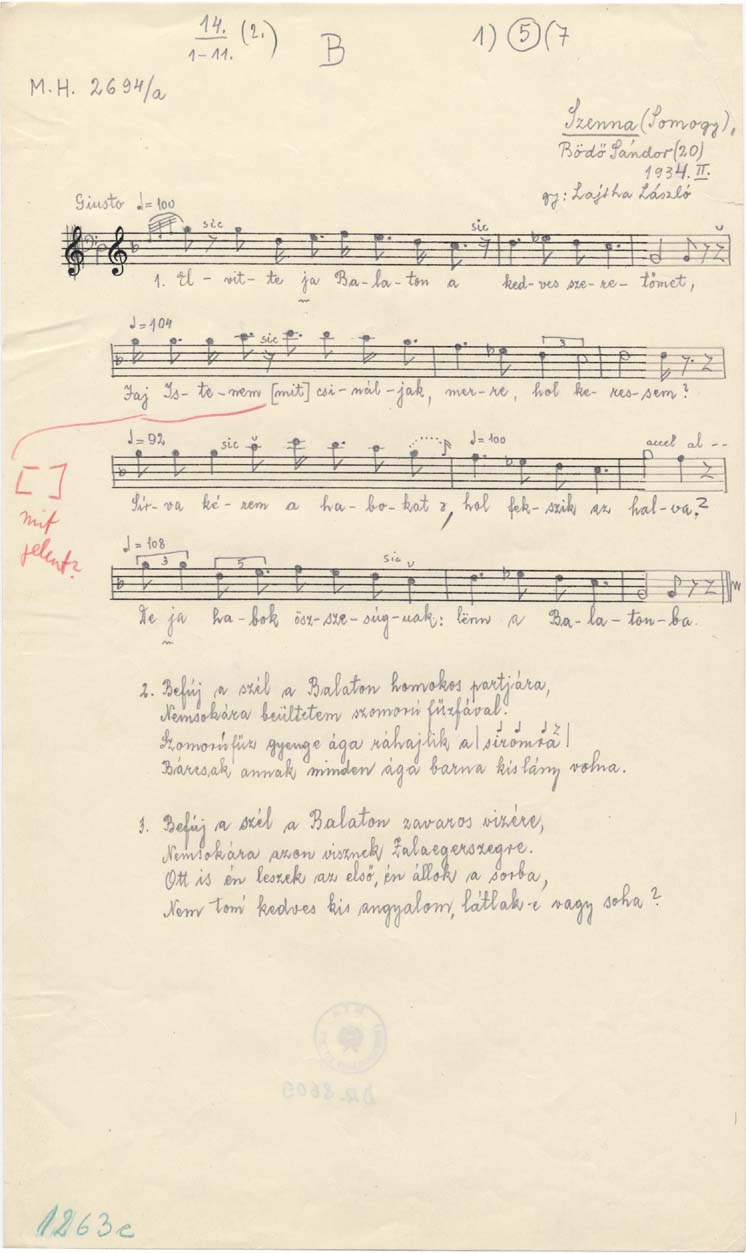 14. (2.)
1-11.
B
1) 5 (7
M.H. 2694/a
Szenna (Somogy),
Bödő Sándor (20)
1934. II.
gy: Lajtha László
Giusto ♩=100
sic sic
1. El-vit-te ja Ba-la-ton a ked-ves sze-re-tőmet,
♩=104
sic 3
Jaj Is-te-nem [mit] csi-nál-jak, mer-re, hol ke-res-sem?
♩=92 sic ♩=100 accel al --
Sír-va ké-rem a ha-bo-kat, hol fek-szik az hal-va?
[ ]
mit
jelent?
♩=108
3 5 sic
De ja ha-bok ösz-sze-súg-nak: lënn a Ba-la-ton-ba.
2. Befúj a szél a Balaton homokos partjára,
Nemsokára beültetem szomorú fűzfával.
Szomorúfűz gyenge ága ráhajlik a | sírömrá |
Bárcsak annak minden ága barna kislány volna.
3. Befúj a szél a Balaton zavaros vizére,
Nemsokára azon visznek Zalaegerszegre.
Ott is én leszek az első, én állok a sorba,
Nem tom' kedves kis angyalom, látlak-e vagy soha?
1263c